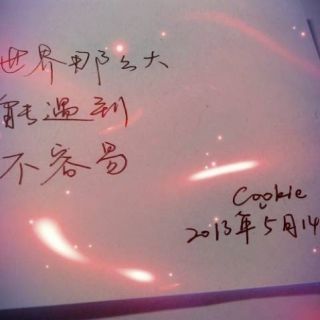 世界那么大
能遇到
不容易
Cookie
2013年5月14